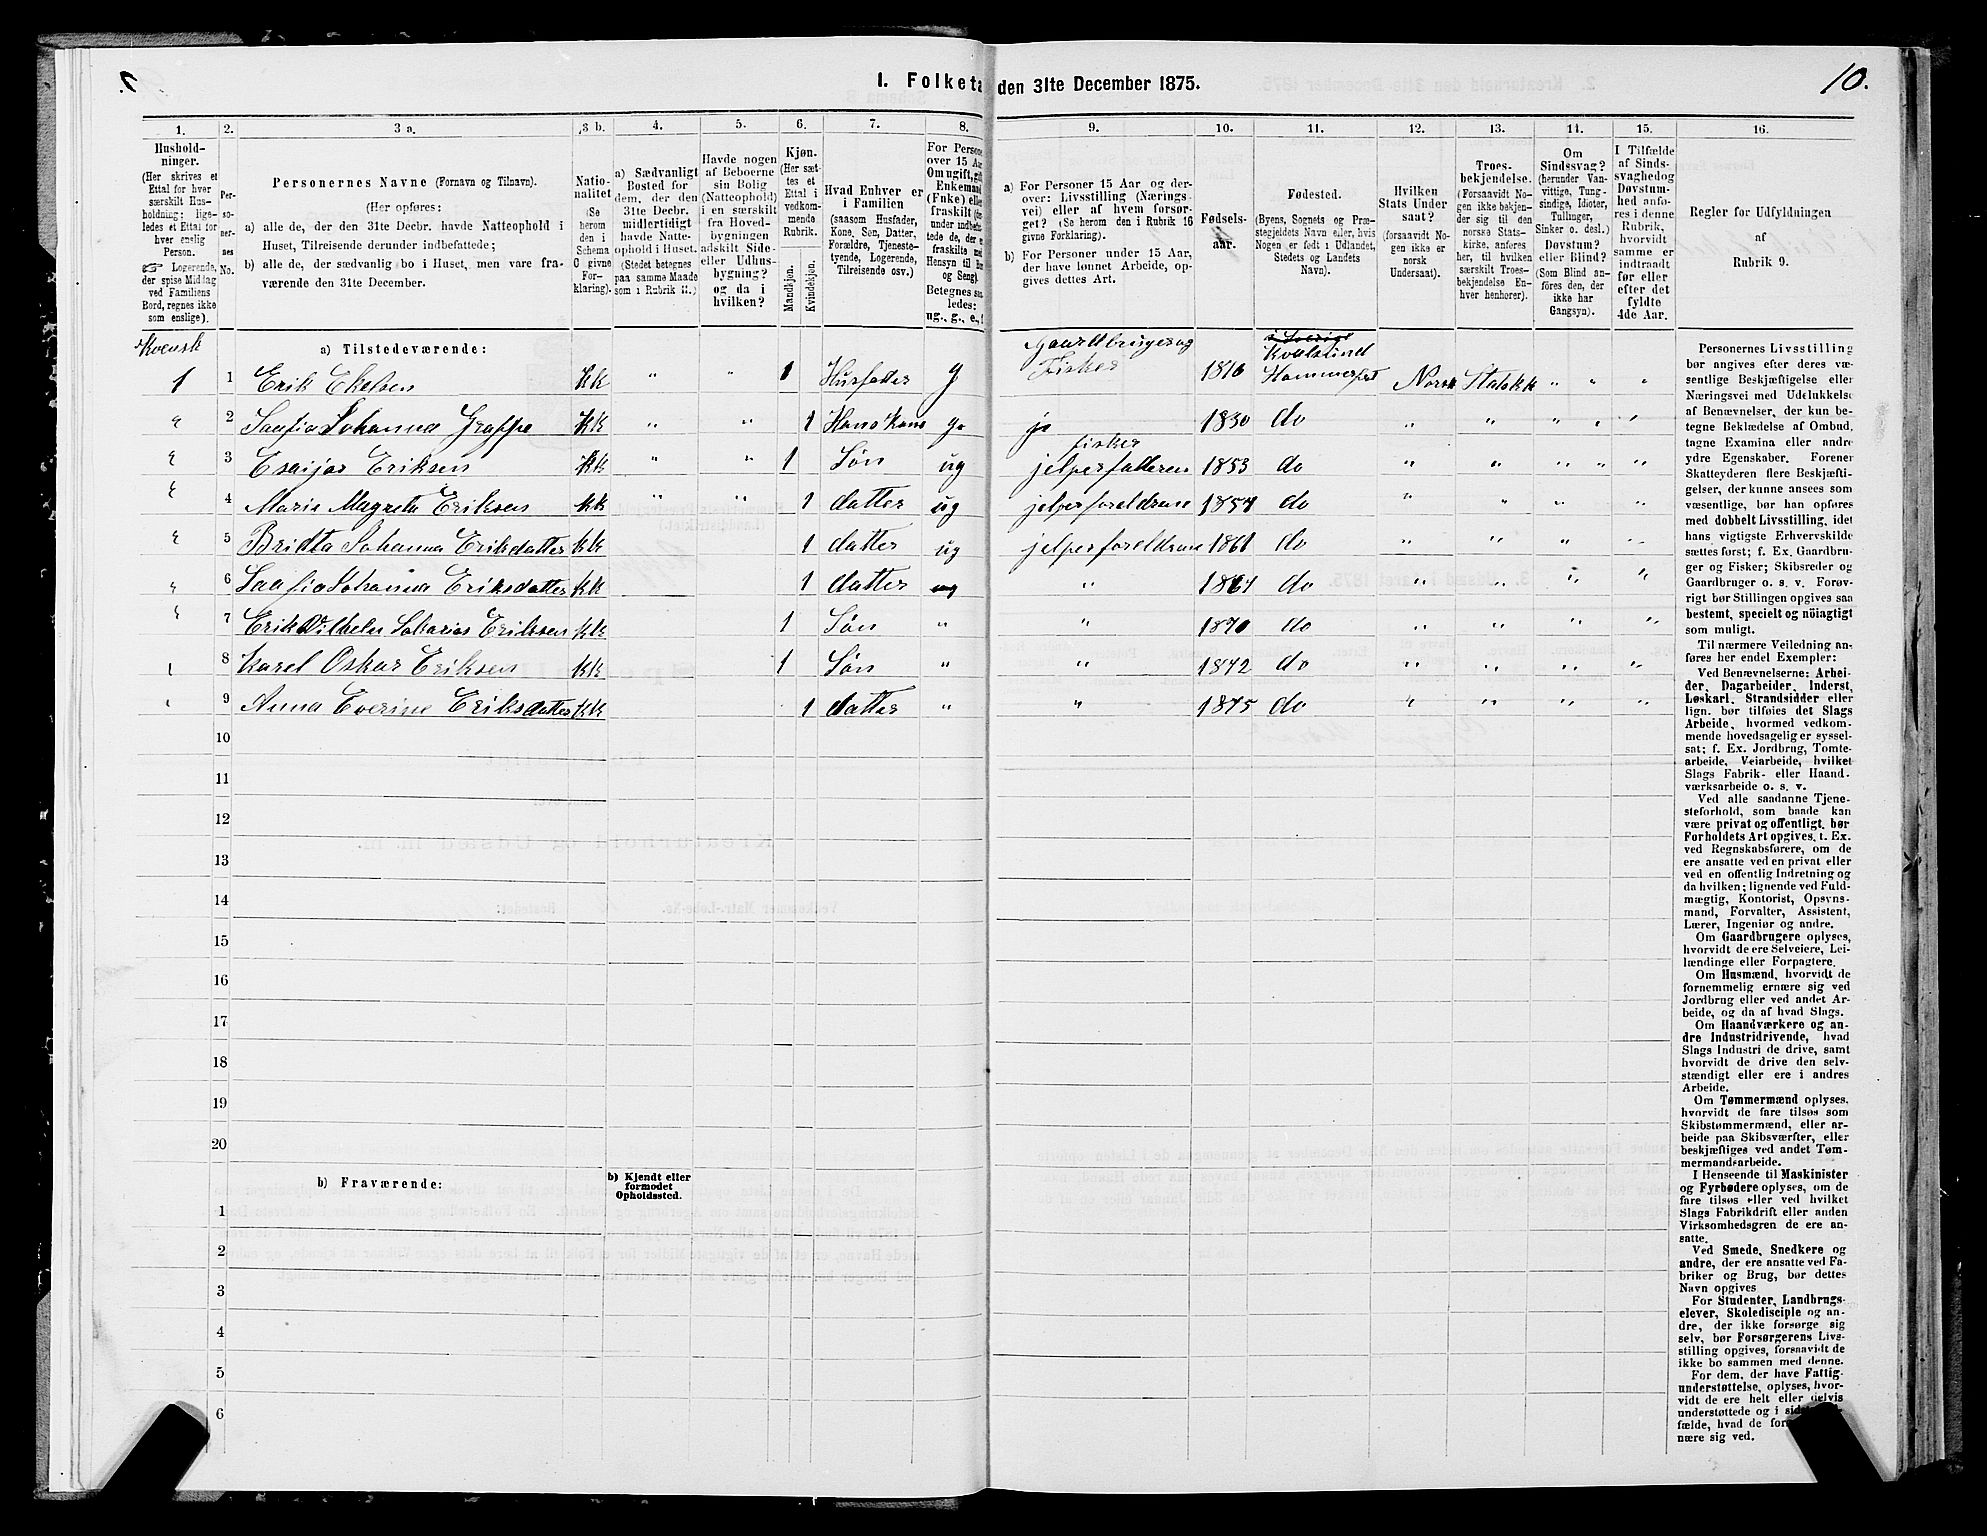 1. Folketæ den 31te December 1875.
10.
1. 2. 3 a. 3 b. 4. 5. 6. 7. 8. 9. 10. 11. 12. 13. 14. 15. 16.
Hushold-
ninger.
(Her skrives et
Ettal for hver
særskilt Hus-
holdning; lige-
ledes et Ettal for
hver enslig
Person.
☞ Logerende,
der spise Middag
ved Familiens
Bord, regnes ikke
som enslige).
Per-
so-
ner-
nes
No.
Personernes Navne (Fornavn og Tilnavn).
(Her opføres:
a) alle de, der den 31te Decbr. havde Natteophold i
Huset, Tilreisende derunder indbefattede;
b) alle de, der sædvanlig bo i Huset, men vare fra-
værende den 31te December.
Natio-
nalitet
(Se
herom
den i
Schema
O givne
For-
klaring).
a) Sædvanligt
Bosted for
dem, der den
31te Decbr.
midlertidigt
havde Natte-
ophold i Huset.
(Stedet betegnes
paa samme Maade
som i Rubrik 11.)
Havde nogen
af Beboerne
sin Bolig
(Natteophold)
i en særskilt
fra Hoved-
bygningen
adskilt Side-
eller Udhus-
bygning?
og da i
hvilken?
Kjøn.
(Her sæt-
tes et
Ettal i
vedkom-
mende
Rubrik.
Mandkjøn.
Kvindekjøn.
Hvad Enhver er
i Familien
(saasom Husfader,
Kone, Søn, Datter,
Forældre, Tjeneste-
tyende, Logerende,
Tilreisende osv.)
For Persone
over 15 Aa
Om ugift, gif
Enkemand
(Enke) elle
fraskilt (de
under indbefa
tede de, der e
fraskilte me
Hensyn til Bo
og Seng).
Betegnes saa
ledes:
ug., g., e.,
a) For Personer 15 Aar og der-
over: Livsstilling (Nærings-
vei) eller af hvem forsør-
get (Se herom den i Rubrik 16
givne Forklaring).
b) For Personer under 15 Aar,
der have lønnet Arbeide, op-
gives dettes Art.
Fødsels-
aar.
Fødested.
(Byens, Sognets og Præ-
stegjeldets Navn eller, hvis
Nogen er født i Udlandet,
Stedets og Landets
Navn).
Hvilken
Stats Under
saat?
(forsaavidt No-
gen ikke er
norsk
Undersaat).
Troes-
bekjendelse.
(Forsaavidt No-
gen ikke bekjen-
der sig til den
norske Stats-
kirke, anføres
her, til hvilken
særskilt Troes-
bekjendelse En-
hver henhører).
Om
Sindssvag?
(herunder Van-
vittige, Tung-
sindige, Idioter,
Tullinger,
Sinker o. desl.)
Døvstum?
eller Blind?
(Som Blind an-
føres den, der
ikke har
Gangsyn).
I Tilfælde
af Sinds-
svaghed og
Døvstum-
hed anfø-
res i denne
Rubrik,
hvorvidt
samme er
indtraadt
før eller
efter det
fyldte
4de Aar.
Regler for Udfyldningen
af
Rubrik 9.
Kvensk
a) Tilstedeværende:
1 1 Erik Ekelsen KK " " 1 Husfader g Gaardbruger og Fisker 1810 i Sverige Kvalsund Hammerfest Norsk Statskk " " "
" 2 Saafia Johanna Grappe KK " " 1 Hans kone g. 1830 do " " " " "
" 3 Esaijas Eriksen KK " " 1 Søn ug fisker jelper fatteren 1853 do " " " " "
" 4 Marie Magreta Eriksen KK " " 1 datter ug jelper foreldrene 1857 do " " " "
" 5 Bridta Johanna Eriksdatter KK 1 datter ug jelper foreldrene 1861 do " " " "
" 6 Saafia Johanna Eriksdatter KK 1 datter ug " 1864 do " " " "
" 7 Erik Vilhelm Sakarias Eriksen KK 1 Søn " " 1870 do " " " "
" 8 Karel Oskar Eriksen KK 1 Søn " " 1872 do " " " "
" 9 Anna Everine Eriksdatter KK 1 datter " " 1875 do " " " "
10
11
12
13
14
15
16
17
18
19
20
b) Fraværende:
b) Kjendt eller
formodet
Opholdssted.
1
2
3
4
5
6
Personernes Livsstilling
bør angives efter deres væ-
sentlige Beskjæftigelse eller
Næringsvei med Udelukkelse
af Benævnelser, der kun be-
tegne Beklædelse af Ombud,
tagne Examina eller andre
ydre Egenskaber. Forener
Skatteyderen flere Beskjæfti-
gelser, der kunne ansees som
væsentlige, bør han opføres
med dobbelt Livsstilling, idet
hans vigtigste Erhvervskilde
sættes først; f. Ex. Gaardbru-
ger og Fisker; Skibsreder og
Gaardbruger o. s. v. Forøv-
rigt bør Stillingen opgives saa
bestemt, specielt og nöiagtigt
som muligt.
Til nærmere Veiledning an-
føres her endel Exempler:
Ved Benævnelserne: Arbei-
der, Dagarbeider, Inderst,
Løskarl, Strandsidder eller
lign. bør tilføies det Slags
Arbeide, hvormed vedkom-
mende hovedsagelig er syssel-
sat; f. Ex. Jordbrug, Tomte-
arbeide, Veiarbeide, hvilket
Slags Fabrik- eller Haand-
værksarbeide o. s. v.
Ved alle saadanne Tjene-
steforhold, som baade kan
være privat og offentligt, bør
Forholdets Art opgives, t. Ex.
ved Regnskabsførere, om de
ere ansatte ved en privat eller
ved en offentlig Indretning og
da hvilken; lignende ved Fuld-
mægtig, Kontorist, Opsyns-
mand, Forvalter, Assistent,
Lærer, Ingeniør og andre.
Om Gaardbrugere oplyses,
hvorvidt de ere Selveiere, Lei-
lændinge eller Forpagtere.
Om Husmænd, hvorvidt de
fornemmelig ernære sig ved
Jordbrug eller ved andet Ar-
beide, og da af hvad Slags.
Om Haandværkere og an-
dre Industridrivende, hvad
Slags Industri de drive, samt
hvorvidt de drive den selv-
stændigt eller ere i andres
Arbeide.
Om Tømmermænd oplyses,
hvorvidt de fare tilsøs som
Skibstømmermænd, eller ar-
beide paa Skibsværfter, eller
beskjæftiges ved andet Tøm-
mermandsarbeide.
I Henseende til Maskinister
og Fyrbødere oplyses, om de
fare tilsøs eller ved hvilket
Slags Fabrikdrift eller anden
Virksomhedsgren de ere an-
satte.
Ved Smede, Snedkere og
andre, der ere ansatte ved Fa-
briker og Brug, bør dettes
Navn opgives
For Studenter, Landbrugs-
elever, Skoledisciple og an-
dre, der ikke forsørge sig
selv, bør Forsørgerens Livs-
stilling opgives, forsaavidt de
ikke bo sammen med denne.
For dem, der have Fattig-
understøttelse, oplyses, hvor-
vidt de ere helt eller delvis
understøttede og i sidst
fælde, hvad de for
nære sig ved.